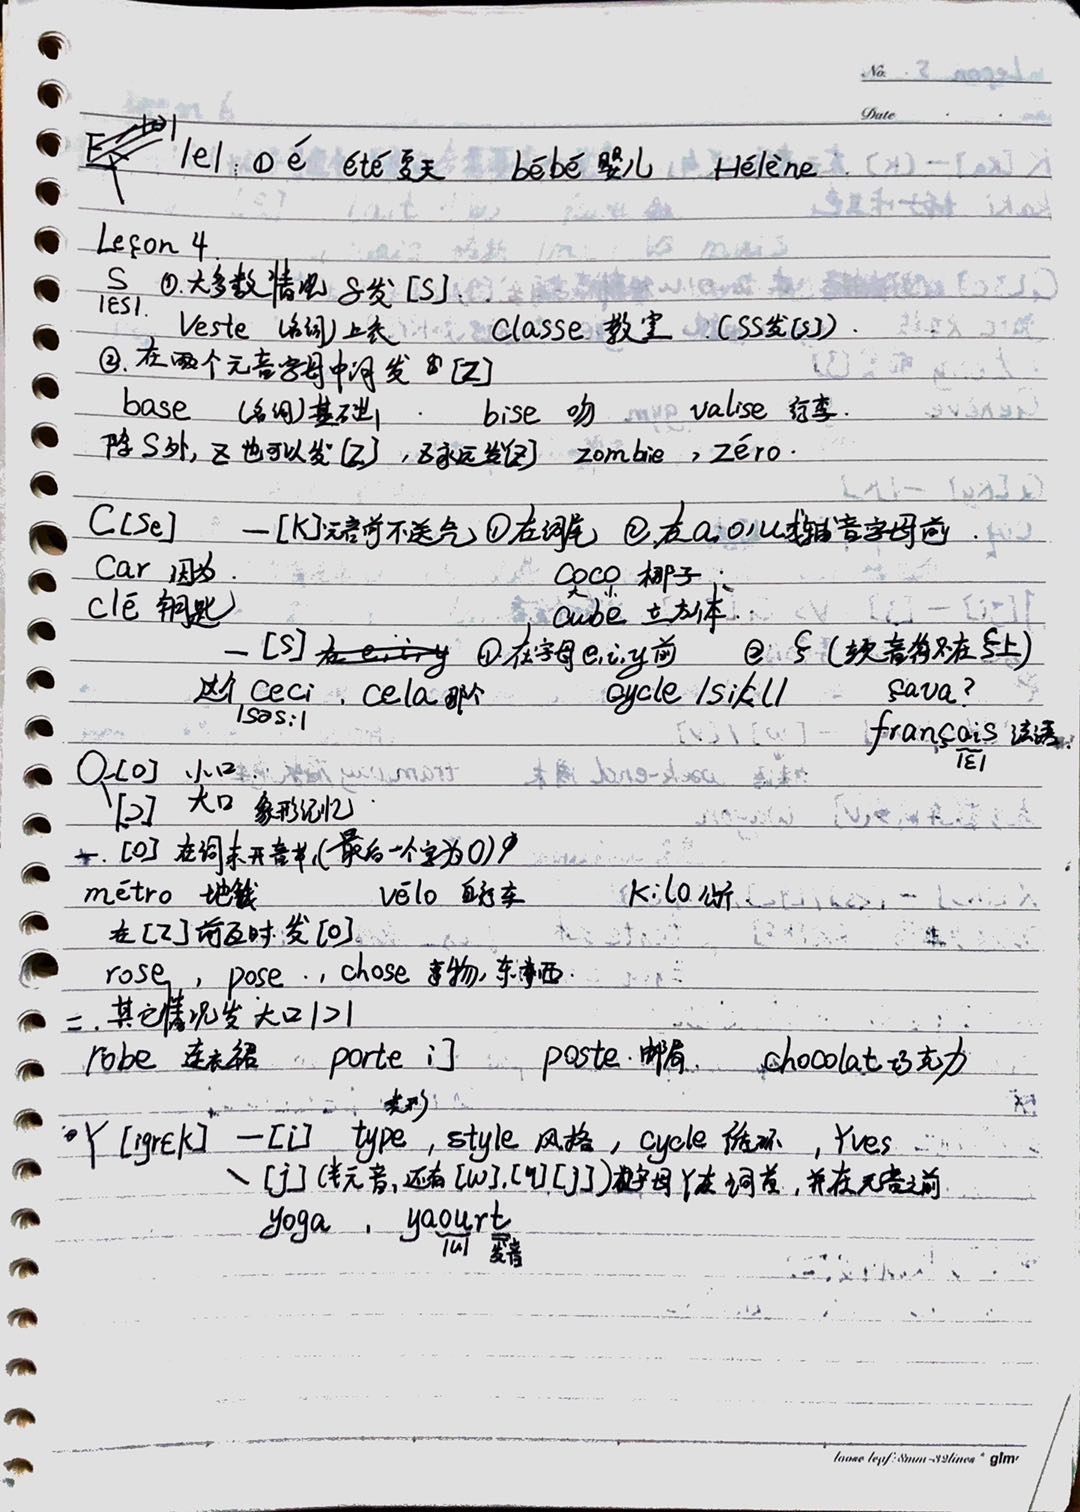 No.
Date
E |e| ① é été 夏天 bébé 婴儿 Hélène
Leçon 4
S ①.大多数情况 S发[S].
|ES|.
Veste (名词)上衣 Classe 教室 (SS发[S]).
②.在两个元音字母中间发[Z]
base (名词)基础 bise 吻 valise 行李.
除S外, Z也可以发[Z], Z永远发[Z] zombie, zéro.
C[Se] —[K]元音前不送气 ①在词尾 ②.在a,o,u或辅音字母前.
Car 因为. coco 椰子.
大 小
clé 钥匙 cube 立方体.
—[S] 在e,i,y ①在字母e,i,y前 ② ç (读音符不在ç上)
这个 ceci. cela 那个 cycle |sikl| çava?
|səsi| français 法语.
|ɛ|
O [o] 小口.
[ɔ] 大口 象形记忆.
一. [o] 在词末开音节,(最后一个字为O)
métro 地铁 vélo 自行车 Kilo 公斤
在[Z]前面时.发[o]
rose, pose., chose 事物,东西.
二. 其它情况发大口|ɔ|
robe 连衣裙 porte 门 poste 邮局. chocolat 巧克力
类形
Y [igrɛk] —[i] type, style 风格, cycle 循环, Yves
[j] (半元音,还有[w],[ɥ][j])在字母Y在词首,并在元音之前
yoga, yaourt
|u| 发音
loose leaf:8mm-32lines * glm